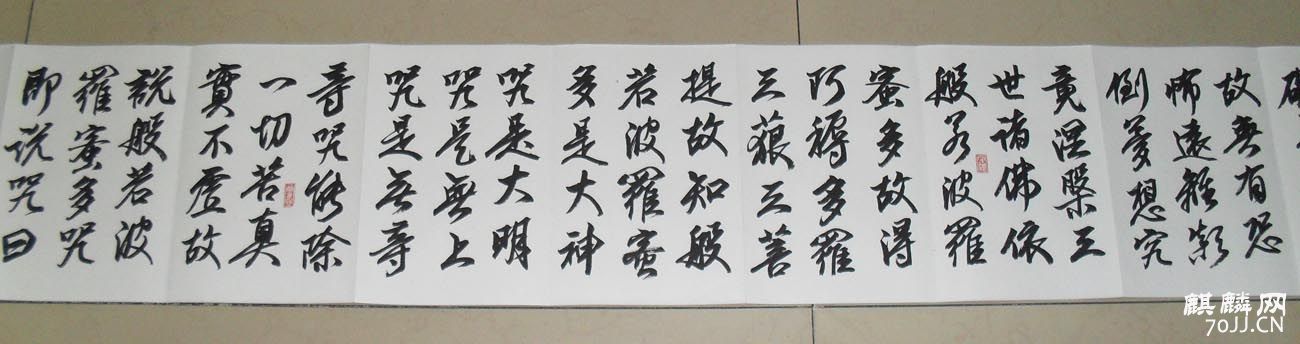 故無有恐
怖遠離顛
倒夢想究
竟涅槃三
世諸佛依
般若波羅
蜜多故得
阿耨多羅
三藐三菩
提故知般
若波羅蜜
多是大神
咒是大明
咒是無上
咒是無等
等咒能除
一切苦真
實不虛故
說般若波
羅蜜多咒
即说咒曰
麒麟网
70JJ.CN